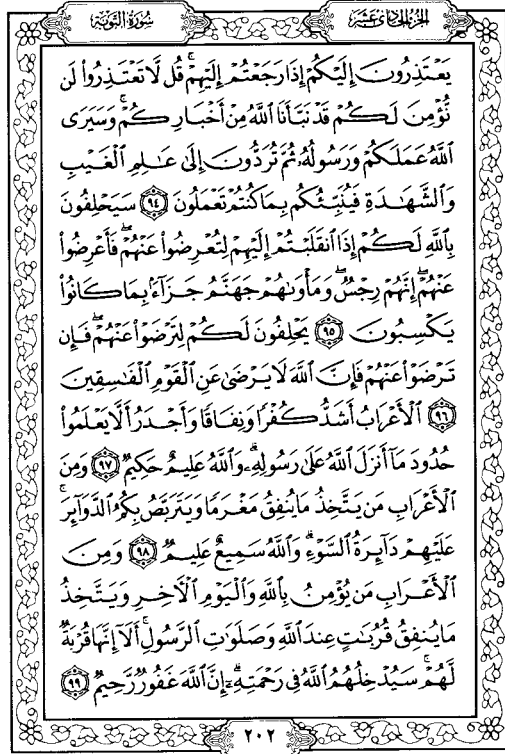 سُورَةُ التَّوْبَةِ
الجُزْءُ الحَادِي عَشَرَ
يَعْتَذِرُونَ إِلَيْكُمْ إِذَا رَجَعْتُمْ إِلَيْهِمْ ۚ قُل لَّا تَعْتَذِرُوا۟ لَن
نُّؤْمِنَ لَكُمْ قَدْ نَبَّأَنَا ٱللَّهُ مِنْ أَخْبَارِكُمْ ۚ وَسَيَرَى
ٱللَّهُ عَمَلَكُمْ وَرَسُولُهُۥ ثُمَّ تُرَدُّونَ إِلَىٰ عَـٰلِمِ ٱلْغَيْبِ
وَٱلشَّهَـٰدَةِ فَيُنَبِّئُكُم بِمَا كُنتُمْ تَعْمَلُونَ ٩٤ سَيَحْلِفُونَ
بِٱللَّهِ لَكُمْ إِذَا ٱنقَلَبْتُمْ إِلَيْهِمْ لِتُعْرِضُوا۟ عَنْهُمْ ۖ فَأَعْرِضُوا۟
عَنْهُمْ ۖ إِنَّهُمْ رِجْسٌ ۖ وَمَأْوَىٰهُمْ جَهَنَّمُ جَزَآءًۢ بِمَا كَانُوا۟
يَكْسِبُونَ ٩٥ يَحْلِفُونَ لَكُمْ لِتَرْضَوْا۟ عَنْهُمْ ۖ فَإِن
تَرْضَوْا۟ عَنْهُمْ فَإِنَّ ٱللَّهَ لَا يَرْضَىٰ عَنِ ٱلْقَوْمِ ٱلْفَـٰسِقِينَ
٩٦ ٱلْأَعْرَابُ أَشَدُّ كُفْرًا وَنِفَاقًا وَأَجْدَرُ أَلَّا يَعْلَمُوا۟
حُدُودَ مَآ أَنزَلَ ٱللَّهُ عَلَىٰ رَسُولِهِۦ ۗ وَٱللَّهُ عَلِيمٌ حَكِيمٌ ٩٧ وَمِنَ
ٱلْأَعْرَابِ مَن يَتَّخِذُ مَا يُنفِقُ مَغْرَمًا وَيَتَرَبَّصُ بِكُمُ ٱلدَّوَآئِرَ ۚ
عَلَيْهِمْ دَآئِرَةُ ٱلسَّوْءِ ۗ وَٱللَّهُ سَمِيعٌ عَلِيمٌ ٩٨ وَمِنَ
ٱلْأَعْرَابِ مَن يُؤْمِنُ بِٱللَّهِ وَٱلْيَوْمِ ٱلْـَٔاخِرِ وَيَتَّخِذُ
مَا يُنفِقُ قُرُبَـٰتٍ عِندَ ٱللَّهِ وَصَلَوَٰتِ ٱلرَّسُولِ ۚ أَلَآ إِنَّهَا قُرْبَةٌ
لَّهُمْ ۚ سَيُدْخِلُهُمُ ٱللَّهُ فِى رَحْمَتِهِۦٓ ۗ إِنَّ ٱللَّهَ غَفُورٌ رَّحِيمٌ ٩٩
٢٠٢